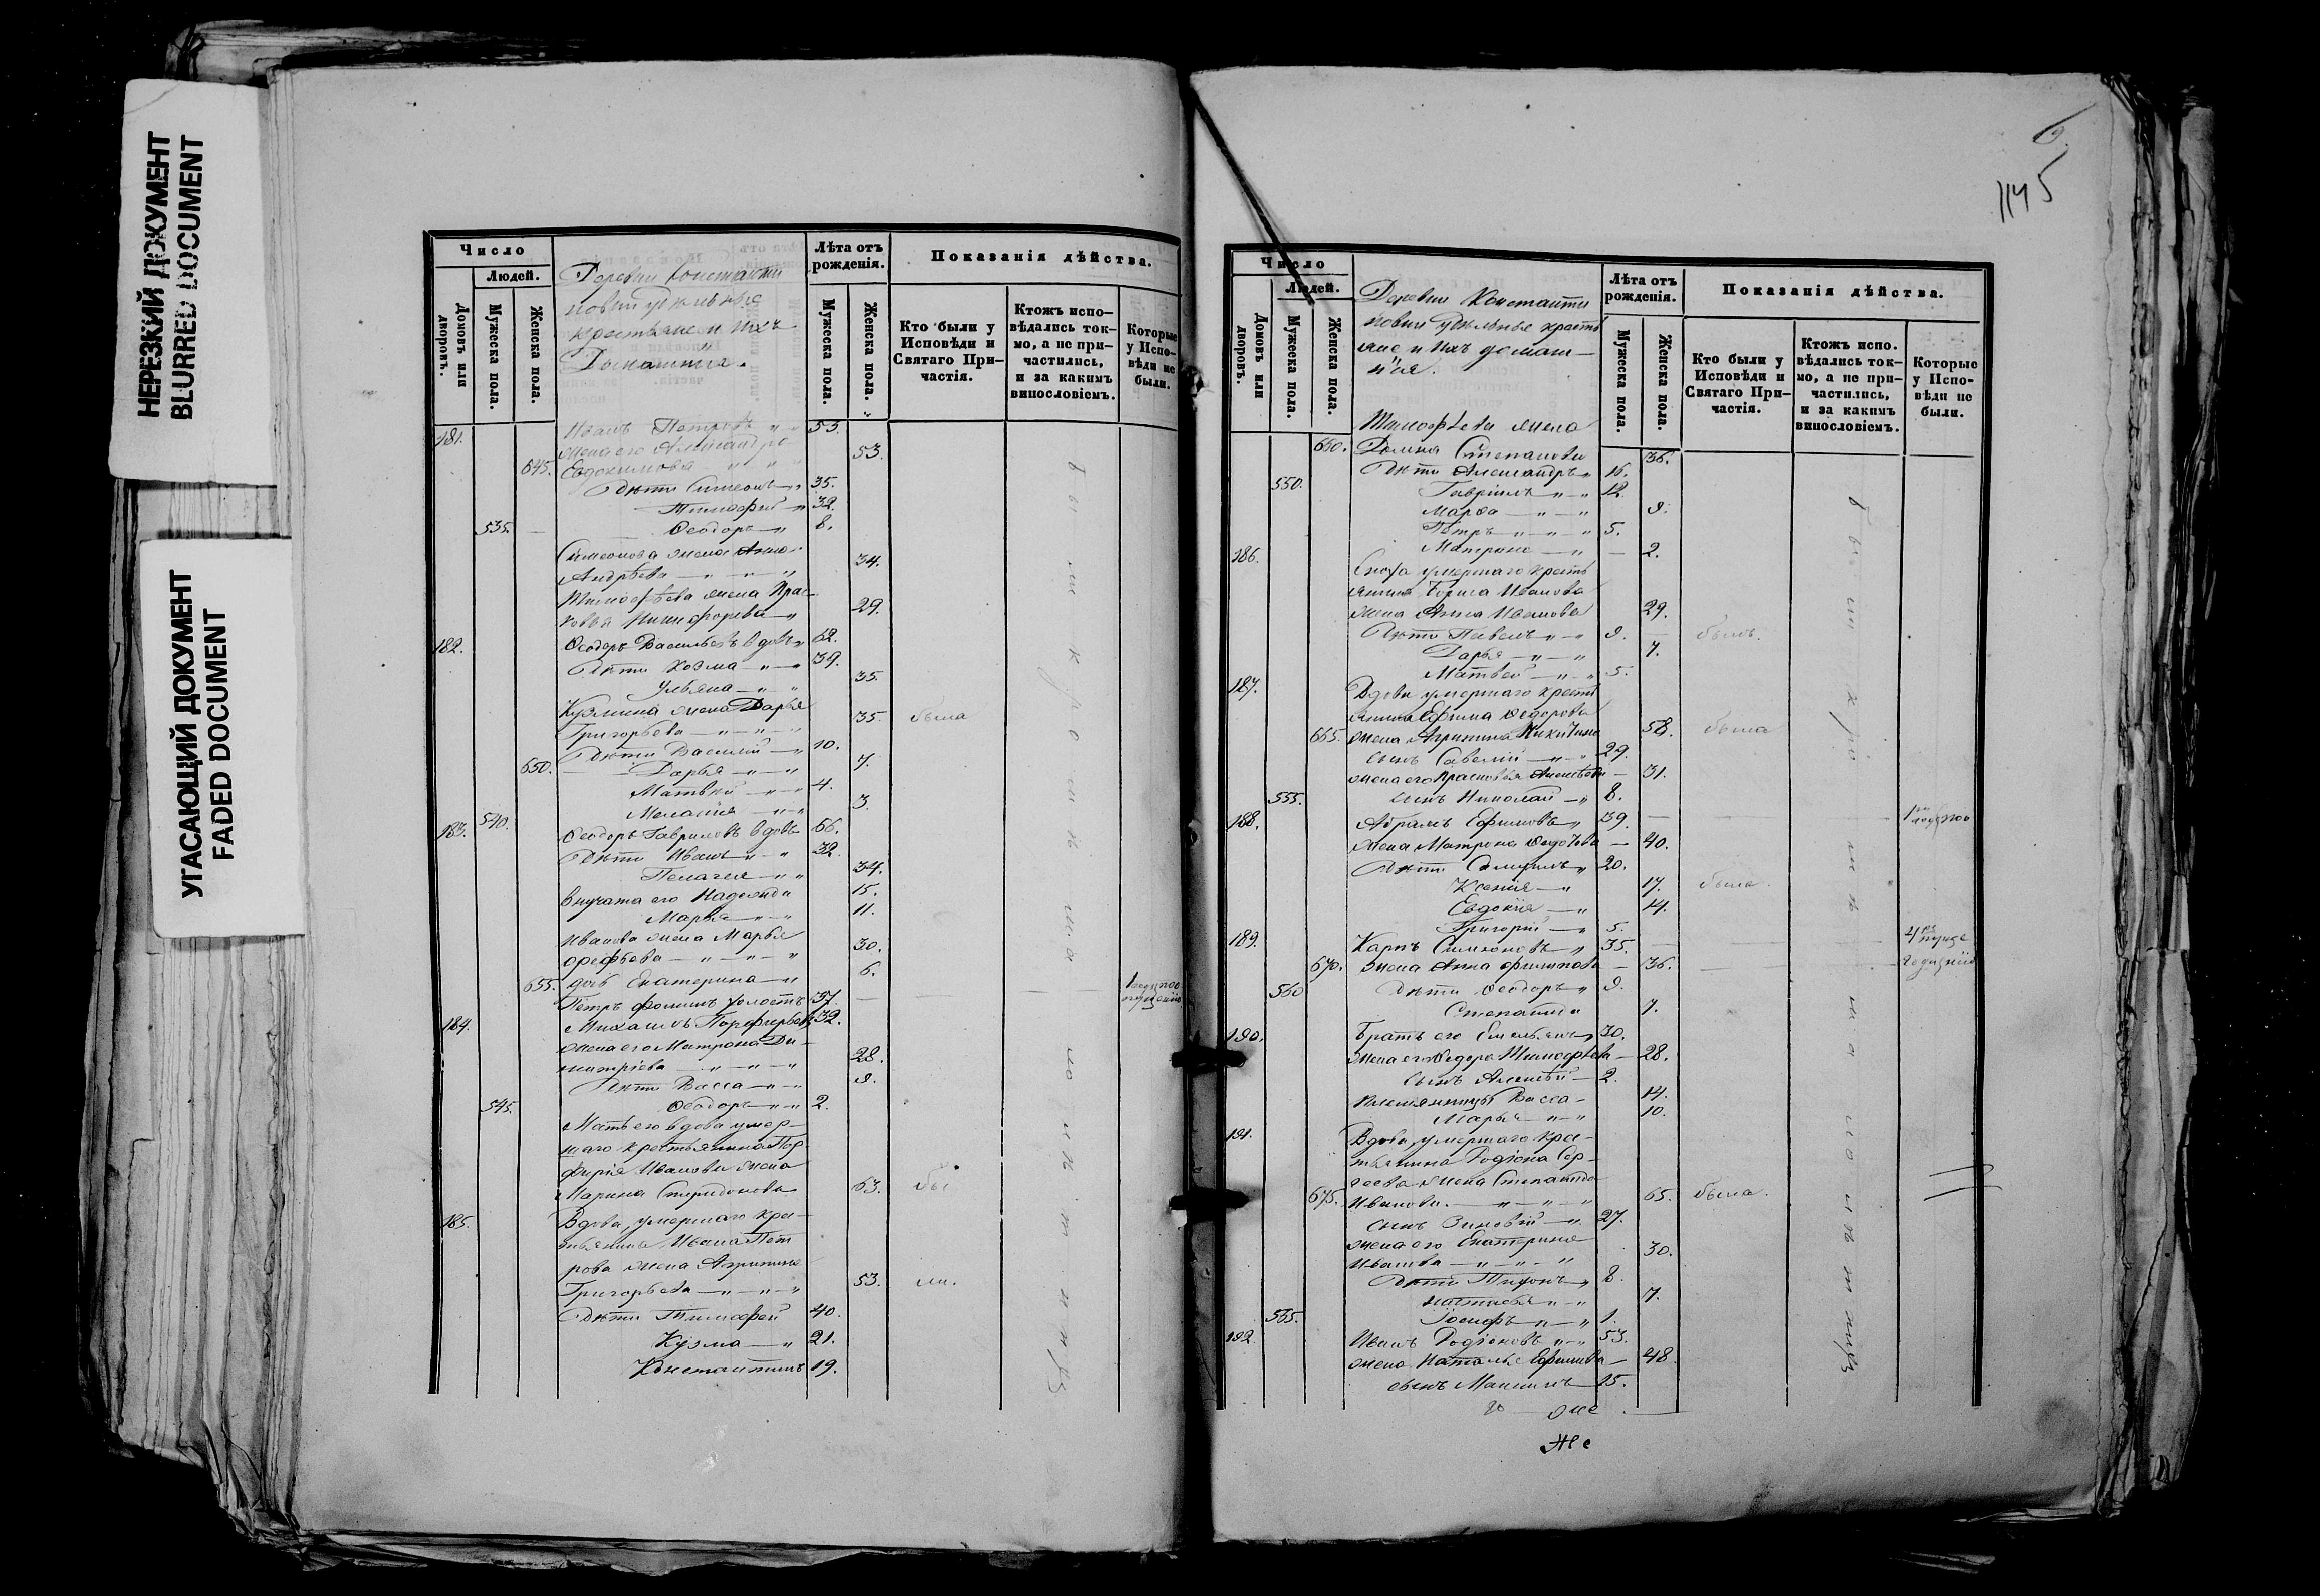 НЕРЕЗКИЙ ДОКУМЕНТ
BLURRED DOCUMENT
УГАСАЮЩИЙ ДОКУМЕНТ
FADED DOCUMENT
Число
Людей.
Домовъ или дворовъ.
Мужеска пола.
Женска пола.
Деревни Константи
новки удѣльные
крестьяне и ихъ
Домашнiе.
Лѣта отъ
рожденія.
Мужеска пола.
Женска пола.
Показанія дѣйства.
Кто были у
Исповѣди и
Святаго При-
частія.
Ктожъ испо-
вѣдались ток-
мо, а не при-
частились,
и за какимъ
винословіемъ.
Которые
у Испо-
вѣди не
были.
181. Иванъ Петровъ 55.
жена его Александра
645. Евдокимова 53.
Дѣти Симеонъ 35.
Тимофей 32.
535. Ѳеодоръ 8.
Симеонова жена Анна
Андрѣева 34.
Тимофѣева жена Прас-
ковья Никифорова 29.
182. Ѳеодоръ Васильевъ вдовъ 62.
Дѣти Козма 39.
Ульяна 35.
Кузмина жена Дарья
Григорьева 35 была
Дѣти Василий 10.
650. Дарья 7.
Матвей 4.
540. Меланiя 3.
183. Ѳеодоръ Гавриловъ вдовъ 66.
Дѣти Иванъ 32.
Пелагея 34.
внучата его Надежда 15.
Марья 11.
Иванова жена Марья
Орефьева 30.
655. дочь Екатерина 6.
Петръ Фоминъ холостъ 37.
184. Михаилъ Порфирьевъ 32.
жена его Матрона Ди-
митрiева 28.
Дѣти Васса 9.
545. Ѳеодоръ 2.
Мать его вдова умер-
шаго крестьянина Пор
фирiя Иванова жена
Марина Спиридонова 63. бы
185. Вдова, умершаго кре-
стьянина Ивана Пет
рова жена Агрипина
Григорьева 53. ли.
Дѣти Тимофей 40.
Кузма 21.
Константинъ 19.
1145
Число
Людей.
Домовъ или дворовъ.
Мужеска пола.
Женска пола.
Деревни Константи
новки удѣльные кресть
яне и ихъ домаш-
нiе.
Лѣта отъ
рожденія.
Мужеска пола.
Женска пола.
Показанія дѣйства.
Кто были у
Исповѣди и
Святаго При-
частія.
Ктожъ испо.
вѣдались ток-
мо, а не при-
частились,
и за какимъ
винословіемъ.
Которые
у Испо-
вѣди не
были.
Тимофѣева жена
660. Домна Степанова 36.
Дѣти Александръ 16.
550. Гаврiилъ 12.
Марѳа 9.
Петръ 5.
Матрона 2.
186. Сноха умершаго кресть
янина Бориса Иванова
жена Анна Иванова 29.
Дѣти Павелъ 9. былъ.
Дарья 7.
Матвей 5.
187. Вдова умершаго кресть
янина Ефима Ѳедорова
665. жена Агрипина Никитина 58. была
сынъ Савелiй 29.
жена его Прасковья Алексѣева 31.
555. сынъ Николай 8.
188. Абрамъ Ефимовъ 39.
жена Матрона Ѳедотова 40.
Дѣти Самуилъ 20.
Ксенiя 17. была.
Евдокiя 14.
Григорiй 5.
189. Карпъ Симеоновъ 35.
670. жена Анна Филипова 36.
560 Дѣти Ѳеодоръ 9.
Степанида 7.
190. Братъ его Емельянъ 30.
жена его Ѳедора Тимофѣева 28.
сынъ Алексѣй 2.
племянницы Васса 14.
Марья 10.
191. Вдова, умершаго кре-
стьянина Родiона Сер-
геева жена Степанида
675. Иванова 65. была.
сынъ Зиновiй 27.
жена его Екатерина
Иванова 30.
Дѣти Тифонъ 8.
Наталья 7.
565. Iосифъ 1.
192. Иванъ Родiоновъ 53.
жена Наталья Ефимова 48.
сынъ Максимъ 15.